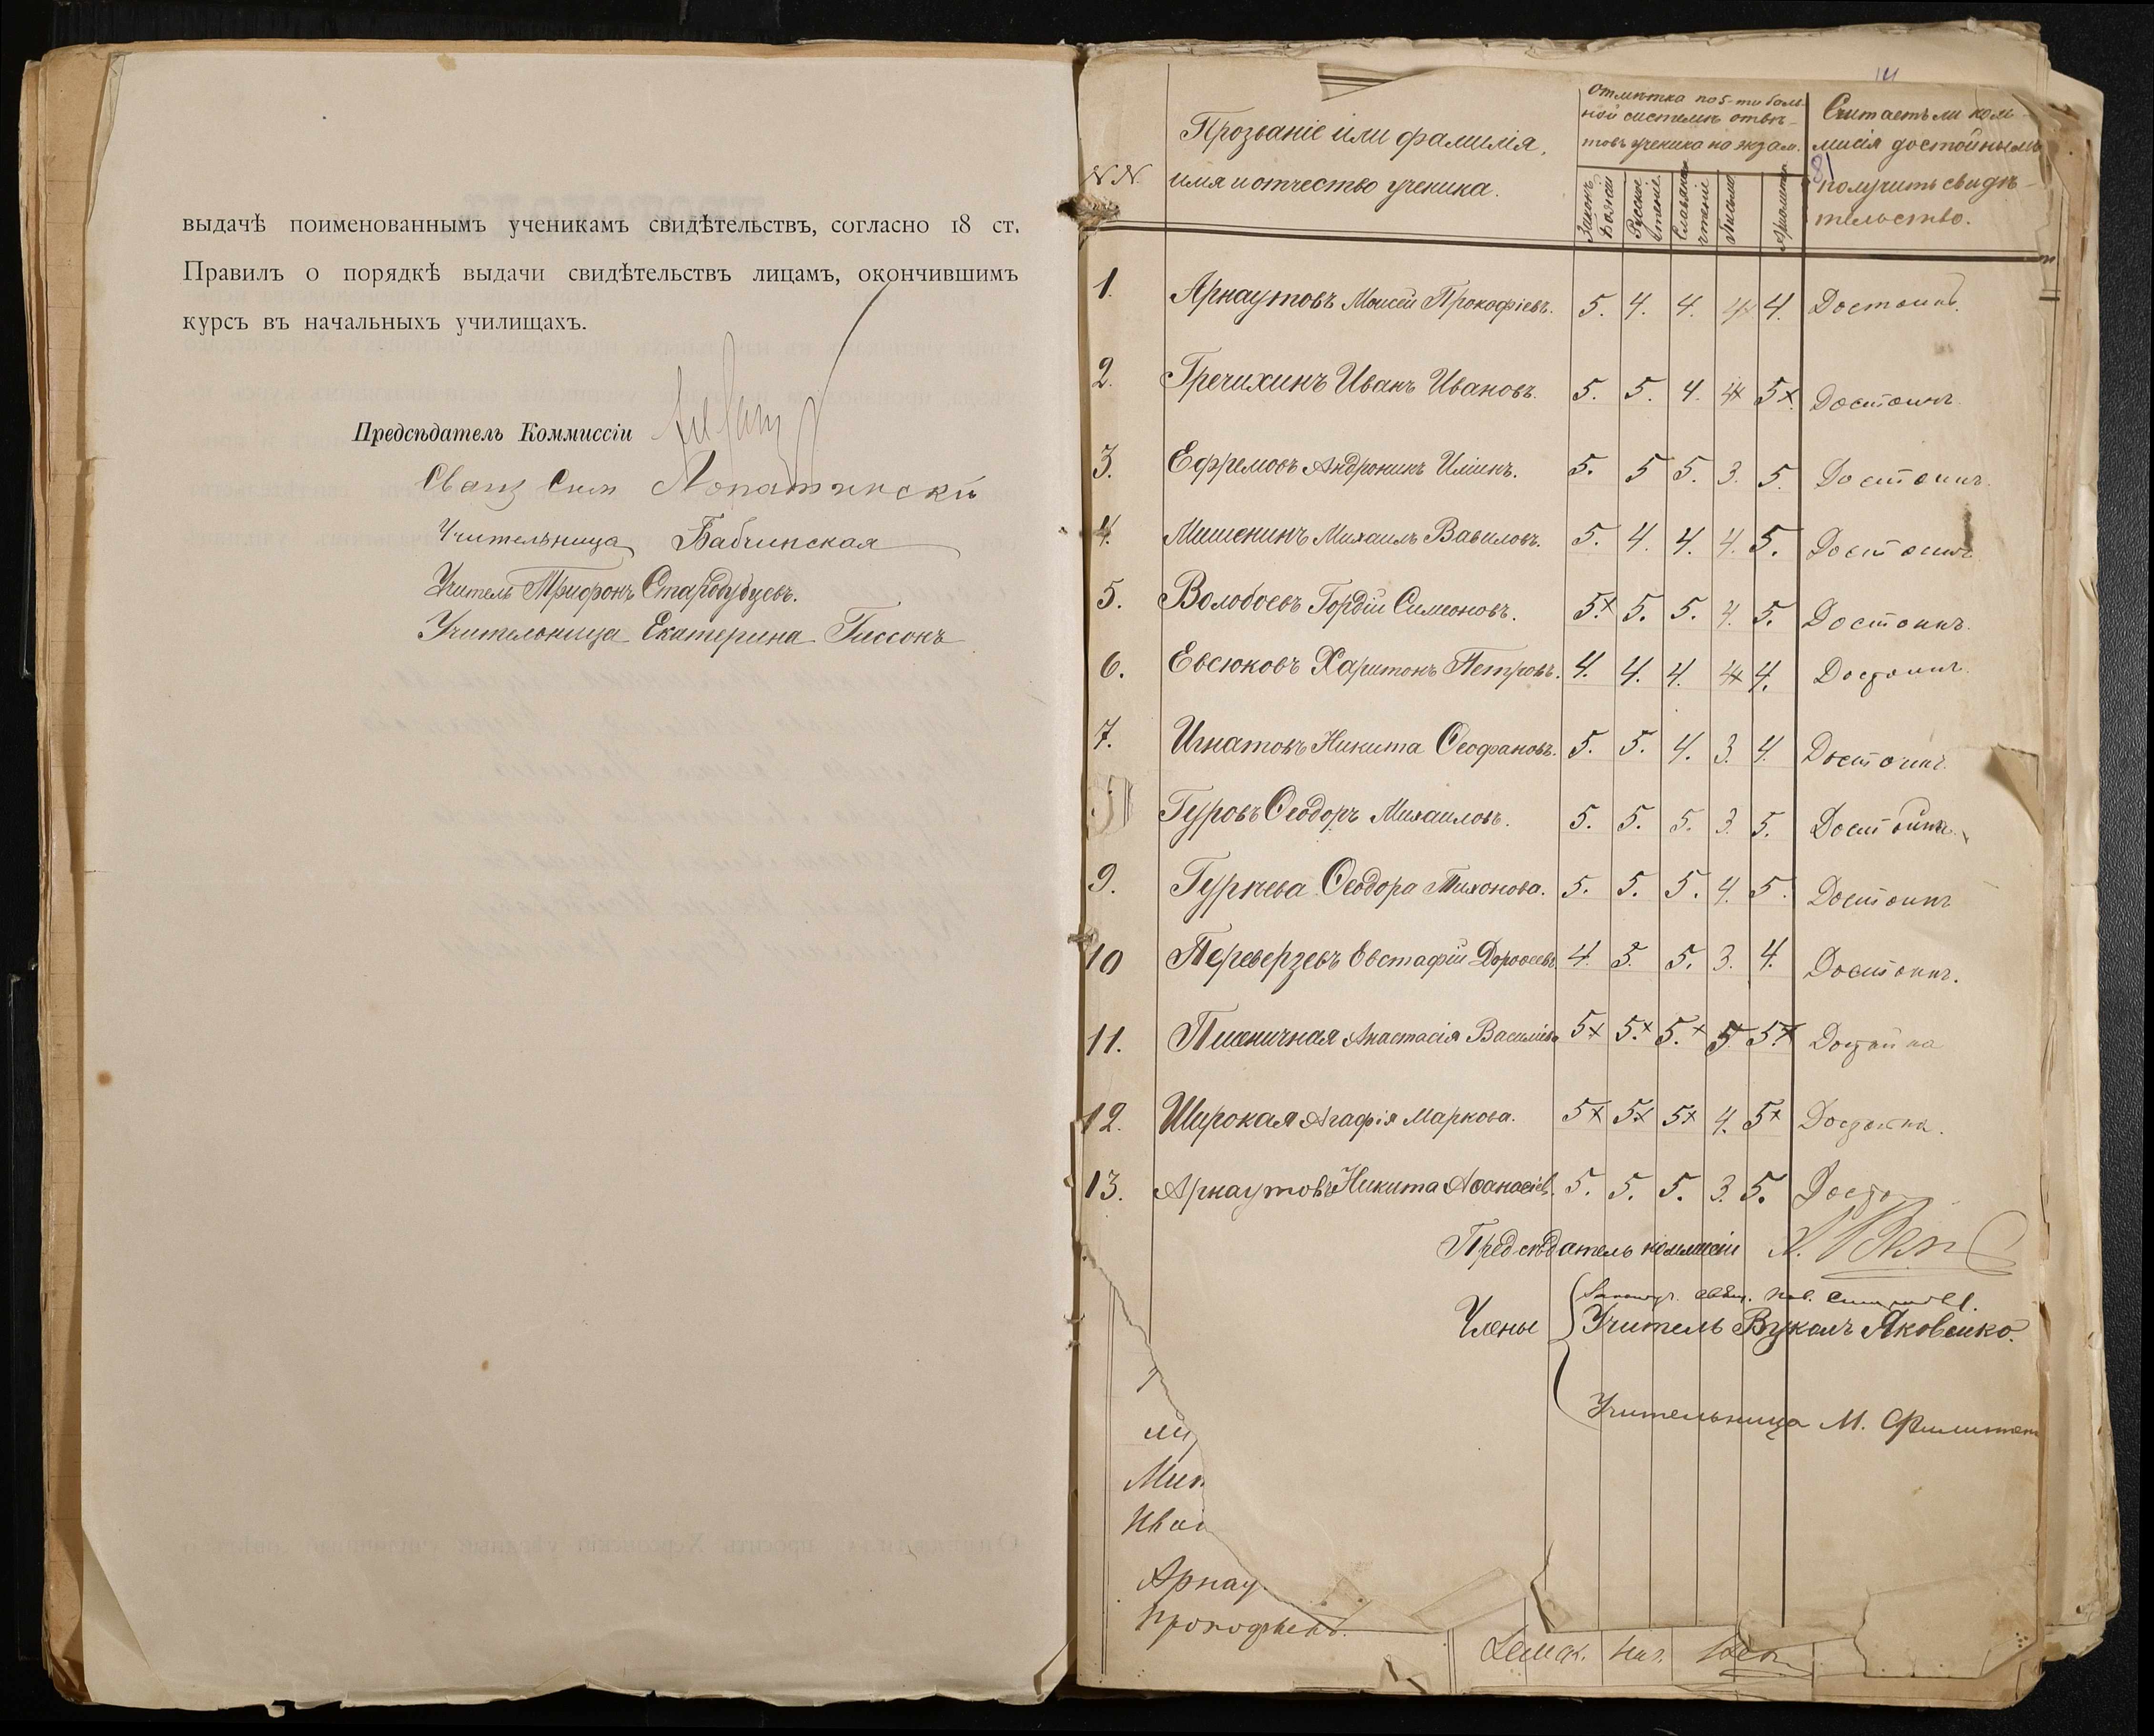 выдачѣ поименованнымъ ученикамъ свидѣтельствъ, согласно 18 ст.
Правилъ о порядкѣ выдачи свидѣтельствъ лицамъ, окончившимъ
курсъ въ начальныхъ училищахъ.
Предсѣдатель Коммиссіи
Свящ Сим Лопатинскій
Учительница Бабчинская
Учитель Трифонъ Стародубцевъ.
Учительница Екатерина Гиссонъ
N.N.
Прозваніе или фамилія,
имя и отчество ученика.
Отмѣтка по 5-ти баль-
ной системѣ отвѣ-
товъ ученика на экзам.
Законъ Божій
Русское чтеніе
Славянск чтеніе
Письмо
Ариѳметик
Считаетъ ли ком-
мисія достойнымъ
получить свидѣ-
тельство.
81
1. Арнаутовъ Моисей Прокофіевъ. 5. 4. 4. 4× 4. Достоинъ.
2. Гречихинъ Иванъ Ивановъ. 5. 5. 4. 4× 5×. Достоинъ.
3. Ефремовъ Андроникъ Иліинъ. 5. 5 5. 3. 5. Достоинъ.
4. Мишенинъ Михаилъ Вавиловъ. 5. 4. 4. 4. 5. Достоинъ
5. Волобоевъ Гордій Симеоновъ. 5× 5. 5. 4. 5. Достоинъ.
6. Евсюковъ Харитонъ Петровъ. 4. 4. 4. 4× 4. Достоинъ.
7. Игнатовъ Никита Ѳеофановъ. 5. 5. 4. 3. 4. Достоинъ.
Гуровъ Ѳеодоръ Михаиловъ. 5. 5. 5. 3. 5. Достоинъ.
9. Гурьева Ѳеодора Тихонова. 5. 5. 5. 4. 5. Достоинъ
10 Переверзевъ Евстафій Дороѳеевъ 4. 5. 5. 3. 4. Достоинъ.
11. Пшеничная Анастасія Василіева 5× 5.× 5.× 5× 5.× Достойна
12. Широкая Агафія Маркова. 5× 5× 5× 4. 5× Достойна.
13. Арнаутовъ Никита Аѳанасіев. 5. 5. 5. 3. 5. Досто
Предсѣдатель коммисіи
Члены
Учитель Вуколъ Яковенко.
Учительница М.
Мит
Иван
Арнау
Прокофьевъ.